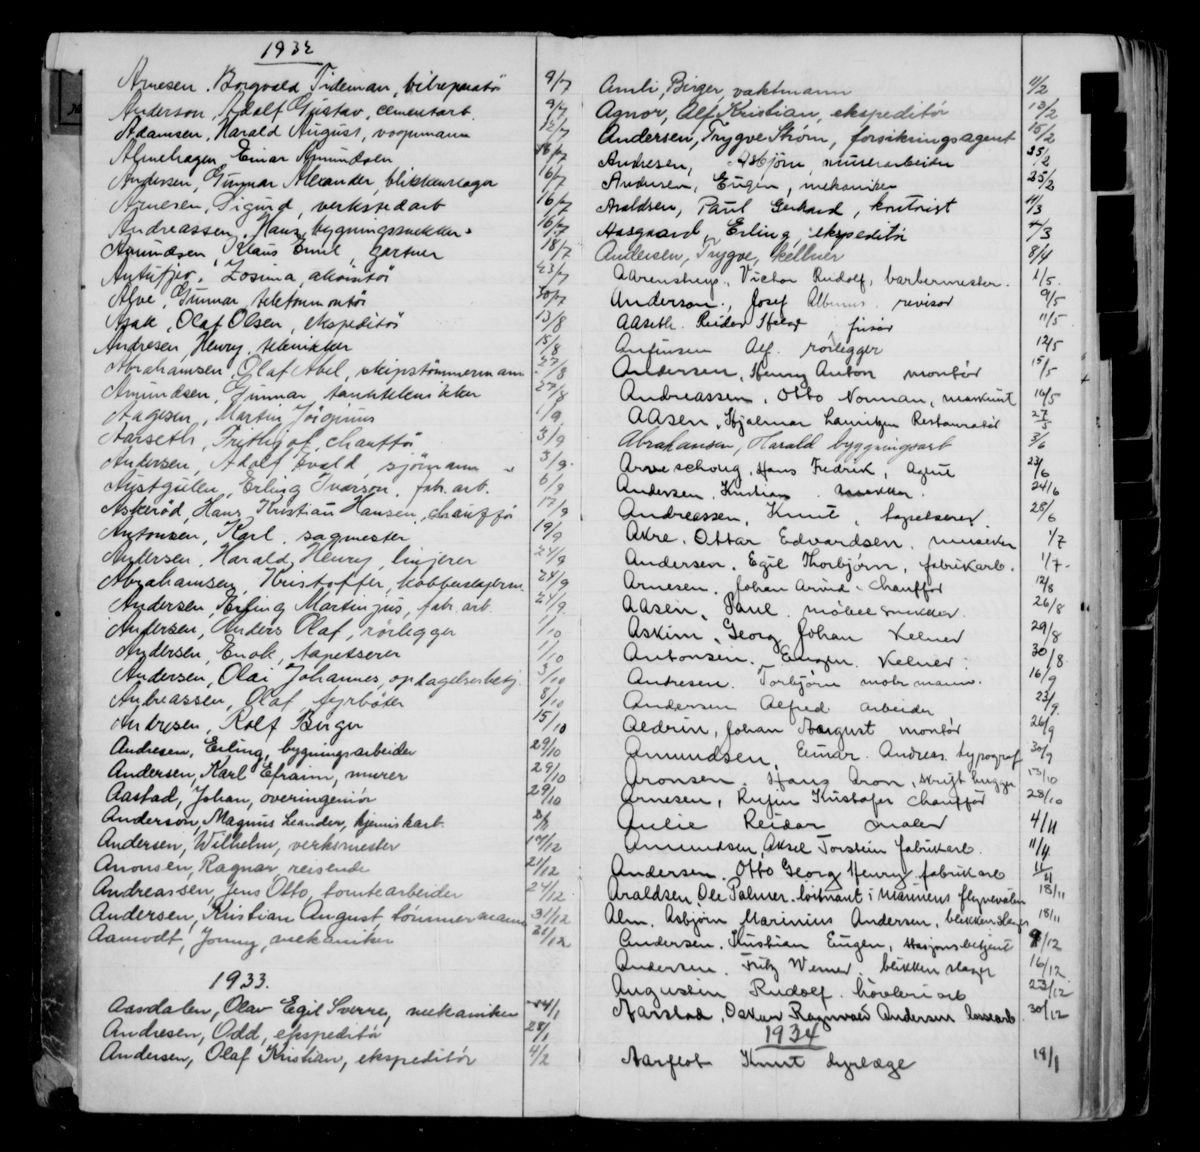 1932
Arnesen, Borgvald Tideman, bilreparatø 9/7
Anderson, Adolf Gustav, cementarb. 9/7
Adamsen, Harald August, vognmann 12/7
Almehagen, Einar Amundsen 16/7
Andersen, Gunnar Alexander, blikkenslager 16/7
Arnesen, Sigurd, verkstedarb 16/7
Andreassen, Hans, bygningssnekker 16/7
Amundsen, Klaus Emil, gartner 18/7
Zosima, 23/7
Alve, Gunnar, telefonmontør 30/7
Asak, Olaf Olsen, ekspeditør 13/8
Andresen Henry, tekniker 15/8
Abrahamsen, Olaf Abel, skipstømmermann 27/8
Amundsen, Gunnar, tanntekniker 27/8
Aagesen, Martin Jørginus 1/9
Aarseth, Frithjof, chauffør 3/9
Andersen, Adolf Evald, sjømann 3/9
Aystgullen, Erling Iverson, fab. arb. 6/9
Askerød, Hans Kristian Hansen, chauffø 17/9
Antonsen, Karl, sagmester 19/9
Andersen, Harald Henry, linjerer 24/9
Abrahamsen, Kristoffer, kobberslagerm. 24/9
Andersen, Erling Martinius, fab. arb. 24/9
Andersen, Anders Olaf, rørlegger 1/10
Andersen, Enok, tapetserer 1/10
Andersen, Olai Johannes, opdagelsesbetj. 3/10
Andreassen, Olaf, fyrbøter 8/10
Andresen, Rolf Birger 15/10
Andresen, Erling, bygningsarbeider 29/10
Andersen, Karl Efraim, murer 29/10
Aastad, Johan, overingeniør 29/10
Anderson, Magnus Leander, kjemiskarb.
Andersen, Wilhelm, verksmester 17/12
Aronsen, Ragnar, reisende 21/12
Andreassen, Jens Otto, tomtearbeider 24/12
Andersen, Kristian August, tømmermann 31/12
Aamodt, Jonny, mekaniker 31/12
1933.
Aasdalen, Olav Egil Sverre, mekaniker 14/1
Andresen, Odd, ekspeditør 28/1
Andersen, Olaf Kristian, ekspeditør 4/2
Amli, Birger, vaktmann 11/2
Agnor, Alf Kristian, ekspeditør 13/2
Andersen, Trygve Strøm, forsikringsagent 15/2
Andresen, Asbjørn, murerarbeider 25/2
Andersen, Eugen, mekaniker 25/2
Araldsen, Paul Gerhard, kontorist 11/3
Aasgaard, Erling, ekspeditør 4/3
Andersen, Trygve, kellner 8/4
Aarenstrup, Victor Rudolf, barbermester. 1/5.
Anderson, Josef Albinus revisor 9/5
Aaseth. Reidar, frisør 11/5
Anfinsen Alf. rørlegger 12/5
Andersen, Henry Anton montør 15/5
Andreassen, Otto Norman, maskinist 16/5
Aasen, Hjalmar Lauritzen Restauratør 27/5
Abrahamsen, Harald bygningsarb 3/6
Arveschoug, Hans Fredrik, Agent 23/6
Andersen, Kristian, snekker. 24/6
Andreassen, Knut, tapetserer 28/6
Akre, Ottar Edvardsen. musiker 1/7
Andersen. Egil Thorbjørn, fabrikarb. 1/7
Arnesen. Johan Arvid - chauffør 12/8
Aasen, Paul. møbelsnekker. 26/8
Askim, Georg Johan Kelner 29/8
Antonsen. Eugen Kelner. 30/8
Andresen. Torbjørn mobr mann. 16/9
Andersen Alfred arbeider 23/9
Aldrin, Johan August montør 26/9
Amundsen, Einar Andreas, typograf 30/9
Aronsen. Hans Aron, 13/10
Arnesen, Kustafer chauffør 28/10
Reidar maler 4/11
Amundsen, Aksel Torstein fabrikarb. 11/4
Andersen. Otto Georg Henry fabrikarb 11/11
Araldsen, Ole Palmer. løitnant i Marinens flyvevåben 18/11
Alm, Asbjørn Marinius Andersen, blikkenslager 18/11
Andersen. Kristian Eugen, stasjonsbetjent 9/12
Andersen. Fritz Werner. blikkenslager 16/12
Augustin Rudolf. høvleriarb 23/12
Aarstad, Oskar Ragnvald Andersen 30/12
1934
Knut dyrlæge 18/1